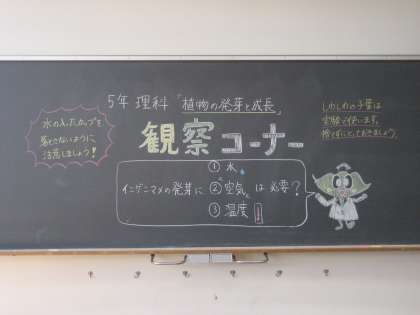 5年 理科 「植物の発芽と成長」
観察コーナー
水の入ったカップを
落とさないように
注意しましょう!
しわしわの子葉は
実験で使います。
捨てずにとっておきましょう。
① 水
インゲンマメの発芽に ② 空気 は 必要?
③ 温度